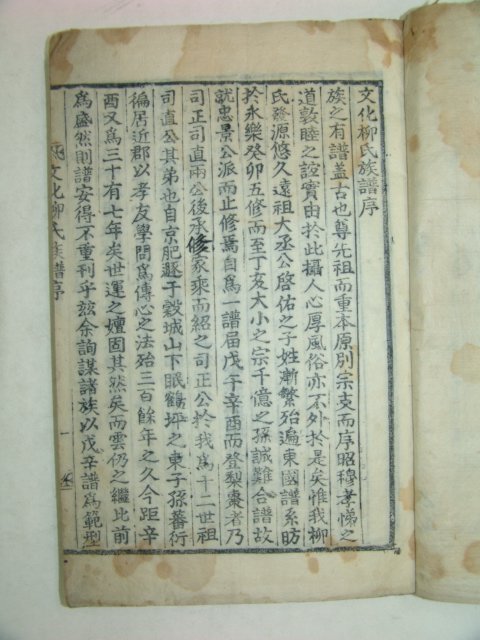 文化柳氏族譜序
族之有譜盖古也尊先祖而重本原別宗支而序昭穆孝悌之
道敦睦之誼實由於此攝人心厚風俗亦不外於是矣惟我柳
氏發源悠久遠祖大丞公啓佑之子姓漸繁殆遍東國譜系昉
於永樂癸卯五修而至丁亥大小之宗千億之孫誠難合譜故
就忠景公派而止修焉自爲一譜届戊子辛酉而登梨棗者乃
司正司直兩公後承修家乘而紹之司正公於我爲十二世祖
司直公其弟也自京肥遯于穀城山下眠鶴坪之東子孫蕃衍
徧居近郡以孝友學問爲傳心之法殆三百餘年之久今距辛
酉又爲三十有七年矣世運之嬗固其然矣而雲仍之繼比前
爲盛然則譜安得不重刊乎玆余詢謀諸族以戊辛譜爲範型
文化柳氏族譜序
一